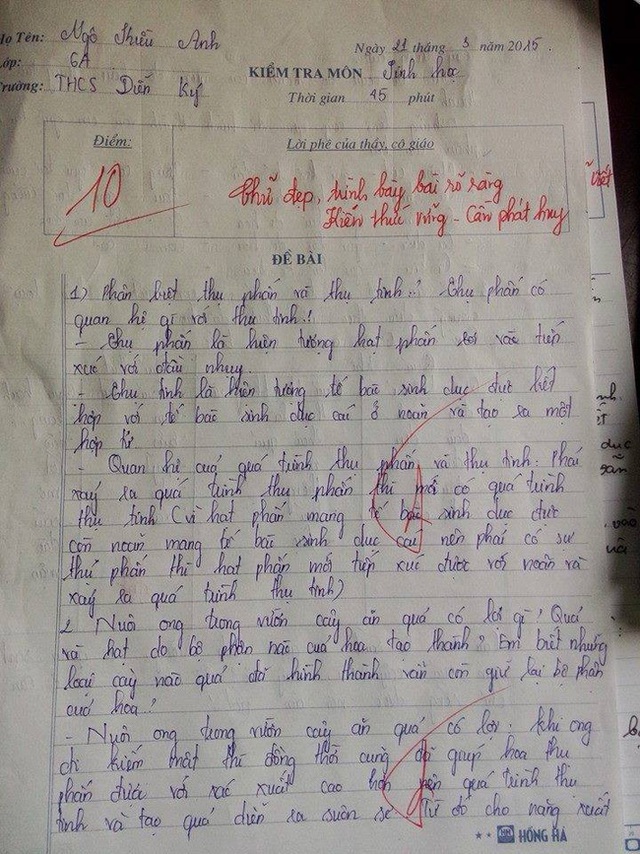 Họ Tên: Ngô Thiều Anh
Lớp: 6A
Trường: THCS Diễn Kỷ
Ngày 21 tháng 3 năm 2015.
KIỂM TRA MÔN Sinh học
Thời gian 45 phút
Điểm:
Lời phê của thầy, cô giáo
10
Chữ đẹp, trình bày bài rõ ràng
Kiến thức vững - Cần phát huy
ĐỀ BÀI
1) Phân biệt thụ phấn và thụ tinh? Thụ phấn có
quan hệ gì với thụ tinh?
- Thụ phấn là hiện tượng hạt phấn rơi vào tiếp
xúc với đầu nhụy.
- Thụ tinh là hiện tượng tế bào sinh dục đực kết
hợp với tế bào sinh dục cái ở noãn và tạo ra một
hợp tử
- Quan hệ của quá trình thụ phấn và thụ tinh: Phải
xảy ra quá trình thụ phấn thì mới có quá trình
thụ tinh (vì hạt phấn mang tế bào sinh dục đực
còn noãn mang tế bào sinh dục cái nên phải có sự
thụ phấn thì hạt phấn mới tiếp xúc được với noãn và
xảy ra quá trình thụ tinh)
2. Nuôi ong trong vườn cây ăn quả có lợi gì? Quả
và hạt do bộ phận nào của hoa tạo thành? Em biết những
loại cây nào quả đã hình thành vẫn còn giữ lại bộ phận
của hoa?
- Nuôi ong trong vườn cây ăn quả có lợi. Khi ong
đi kiếm mật thì đồng thời cũng đã giúp hoa thụ
phấn được với xác xuất cao hơn nên quá trình thụ
tinh và tạo quả diễn ra suôn sẻ. Từ đó cho năng xuất
HỒNG HÀ